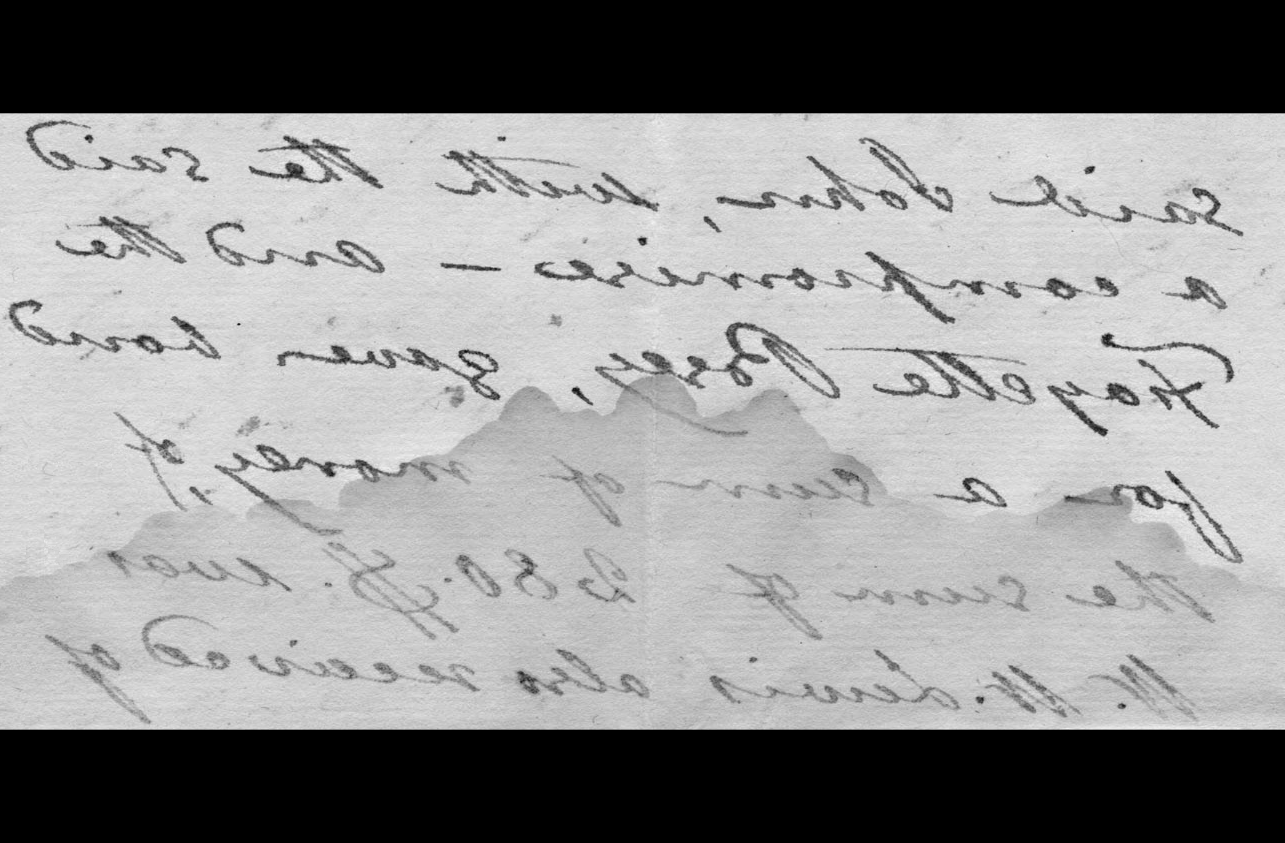 said John, with the said
a compromise – and the
Fayette Posey, gaven bond
for a sum of money, of
the sum of was
W. W. Lewis also received of